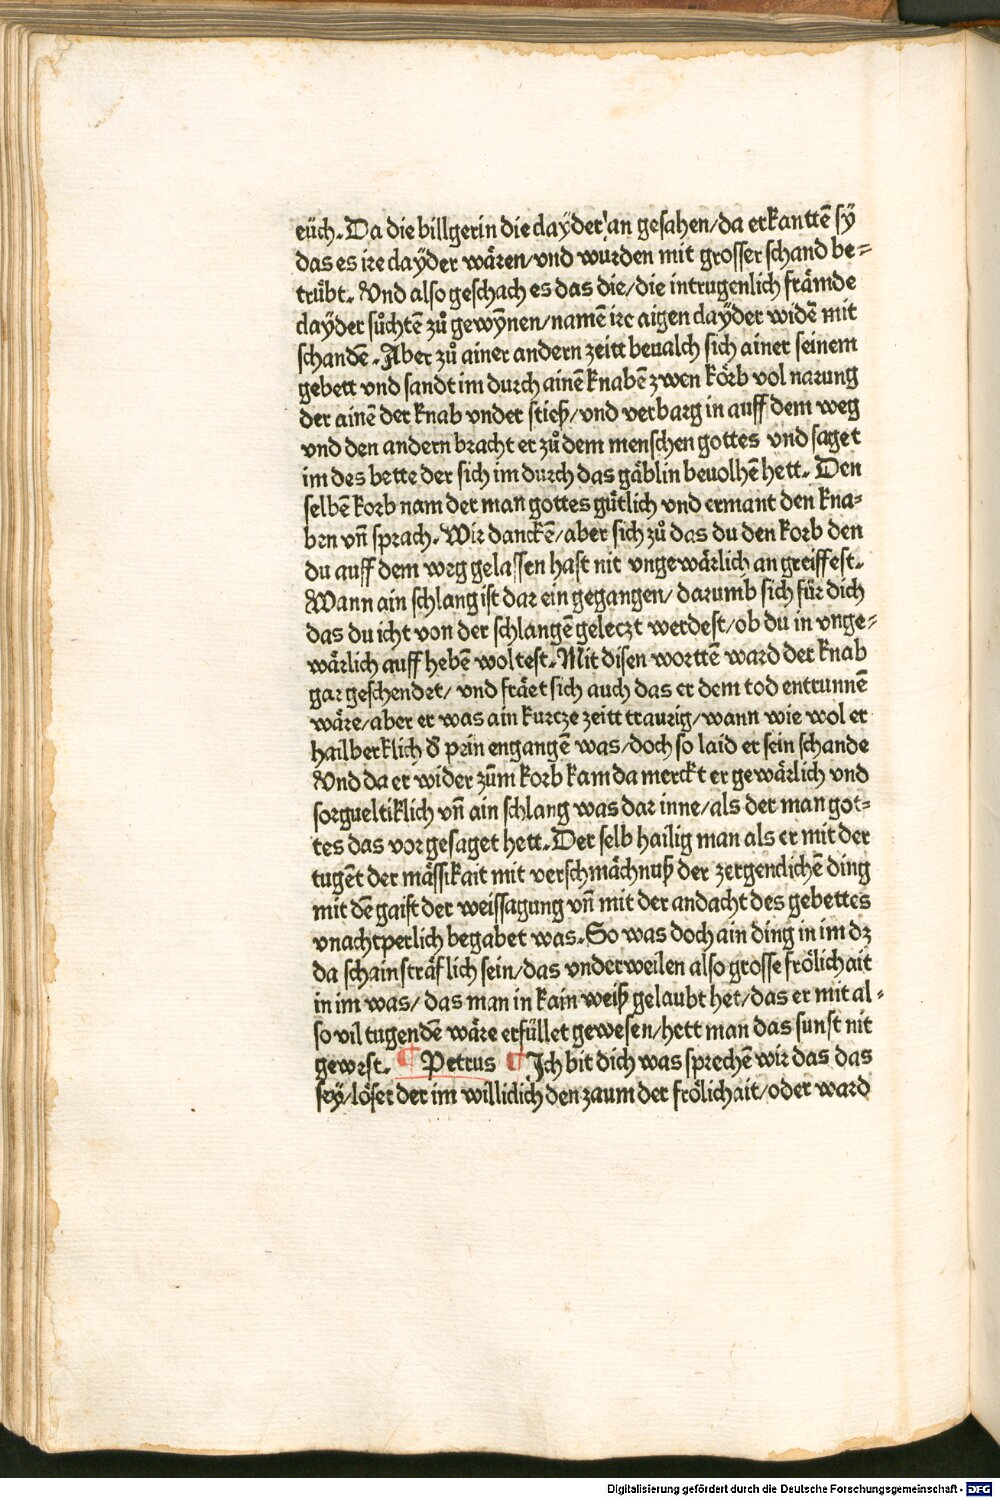 eüch. Da die billgerin die dayder an gesahen/da erkanttē sÿ
das es ire dayder wären/vnd wurden mit grosser schand be-
trübt. Vnd also geschach es das die/die intrugenlich främde
dayder sůchtē zů gewÿnen/namē ire aigen dayder widē mit
schandē. Aber zů ainer andern zeitt beualch sich ainer seinem
gebett vnd sandt im durch ainē knabē zwen körb vol narung
der ainē der knab vnder stieß/vnd verbarg in auff dem weg
vnd den andern bracht er zů dem menschen gottes vnd saget
im des bette der sich im durch das gäblin beuolhē hett. Den
selbē korb nam der man gottes gütlich vnd ermant den kna-
ben vñ sprach. Wir danckē/aber sich zů das du den korb den
du auff dem weg gelassen hast nit vngewärlich an greiffest.
Wann ain schlang ist dar ein gegangen/darumb sich für dich
das du icht von der schlangē geleczt werdest/ob du in vnge-
wärlich auff hebē woltest. Mit disen worttē ward der knab
gar geschendet/vnd fräet sich auch das er dem tod entrunnē
wäre/aber er was ain kurcze zeitt traurig/wann wie wol er
hailberklich đ pein engangē was/doch so laid er sein schande
Vnd da er wider zům korb kam da merckt er gewärlich vnd
sorgueltiklich vñ ain schlang was dar inne/als der man got-
tes das vor gesaget hett. Der selb hailig man als er mit der
tugēt der mässikait mit verschmächnuß der zergenclichē ding
mit dē gaist der weissagung vñ mit der andacht des gebettes
vnachtperlich begabet was. So was doch ain ding in im dz
da schain sträflich sein/das vnderweilen also grosse frölichait
in im was/das man in kain weiß gelaubt het/das er mit al-
so vil tugendē wäre erfüllet gewesen/hett man das sunst nit
gewest. ¶ Petrus ¶ Ich bit dich was sprechē wir das das
sey/löset der im williclich den zaum der frölichait/oder ward
Digitalisierung gefördert durch die Deutsche Forschungsgemeinschaft - DFG